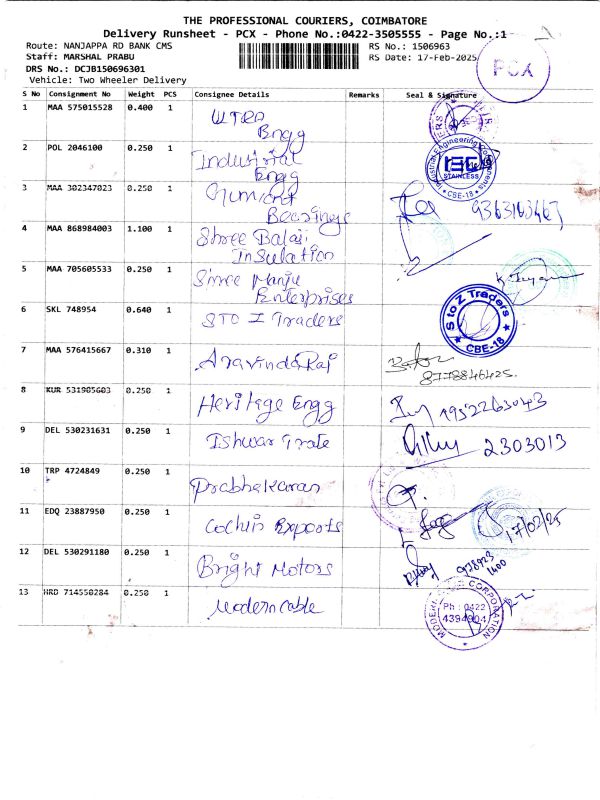 THE PROFESSIONAL COURIERS, COIMBATORE
Delivery Runsheet - PCX - Phone No.:0422-3505555 - Page No.:1
Route: NANJAPPA RD BANK CMS
RS No.: 1506963
Staff: MARSHAL PRABU
RS Date: 17-Feb-2025
DRS No.: DCJB150696301
Vehicle: Two Wheeler Delivery
PCX
S No Consignment No Weight PCS Consignee Details Remarks Seal & Signature
1 MAA 575015528 0.400 1
Engg
2 POL 2046100 0.250 1 Industrial
Engg
Industrial Engineering Components
IEC
STAINLESS
CBE-18
3 MAA 302347023 0.250 1
Bearings
9363163467
4 MAA 868984003 1.100 1 Shree Balaji
Insulation
5 MAA 705605533 0.250 1 Shree Manju
Enterprises
6 SKL 748954 0.640 1 S TO Z Traders
S to Z Traders
CBE-18
7 MAA 576415667 0.310 1 AravindRaj
8778846425.
8 KUR 531985603 0.250 1 Heritage Engg
9 DEL 530231631 0.250 1 Ishwar Trate
2303013
10 TRP 4724849 0.250 1 Prabhakaran
11 EDQ 23887950 0.250 1 Cochin Exports
17/02/25
12 DEL 530291180 0.250 1 Bright Motors
938923
1400
13 HRD 714550284 0.250 1 Modern cable
MODERN CABLE CORPORATION
Ph : 0422
4394904